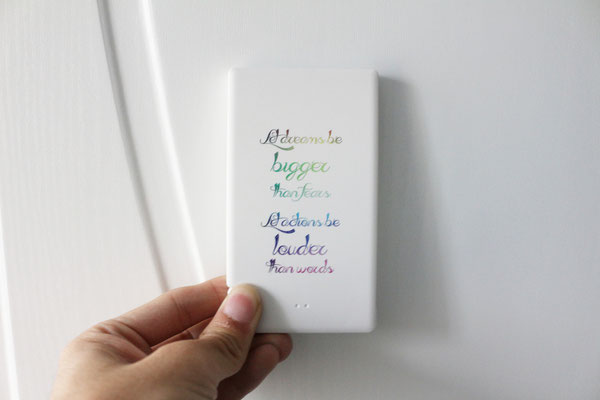 Let dreams be
bigger
than fears
Let actions be
louder
than words